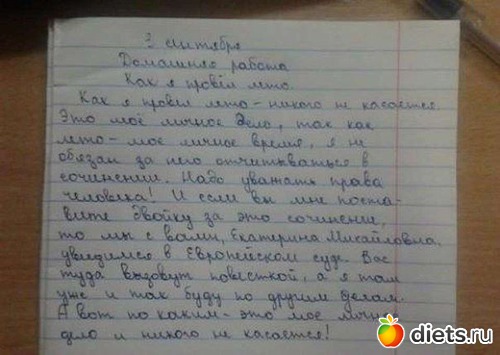 3 сентября
Домашняя работа
Как я провёл лето.
Как я провёл лето - никого не касается.
Это моё личное дело, так как
лето - моё личное время, я не
обязан за него отчитываться в
сочинении. Надо уважать права
человека! И если вы мне поста-
вите двойку за это сочинение,
то мы с вами, Екатерина Михайловна,
увидимся в Европейском суде. Вас
туда вызовут повесткой, а я там
уже и так буду по другим делам.
А вот по каким - это моё личное
дело и никого не касается!
diets.ru